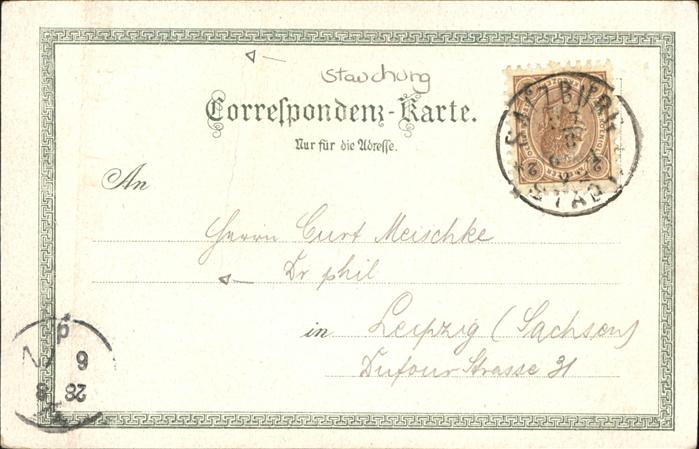 Stauchung
Correspondenz-Karte.
Nur für die Adresse.
An
Herrn Curt Meischke
Dr phil
in Leipzig (Sachsen)
Dufour Strasse 31
SALZBURG
STADT
2
2
6
28 8